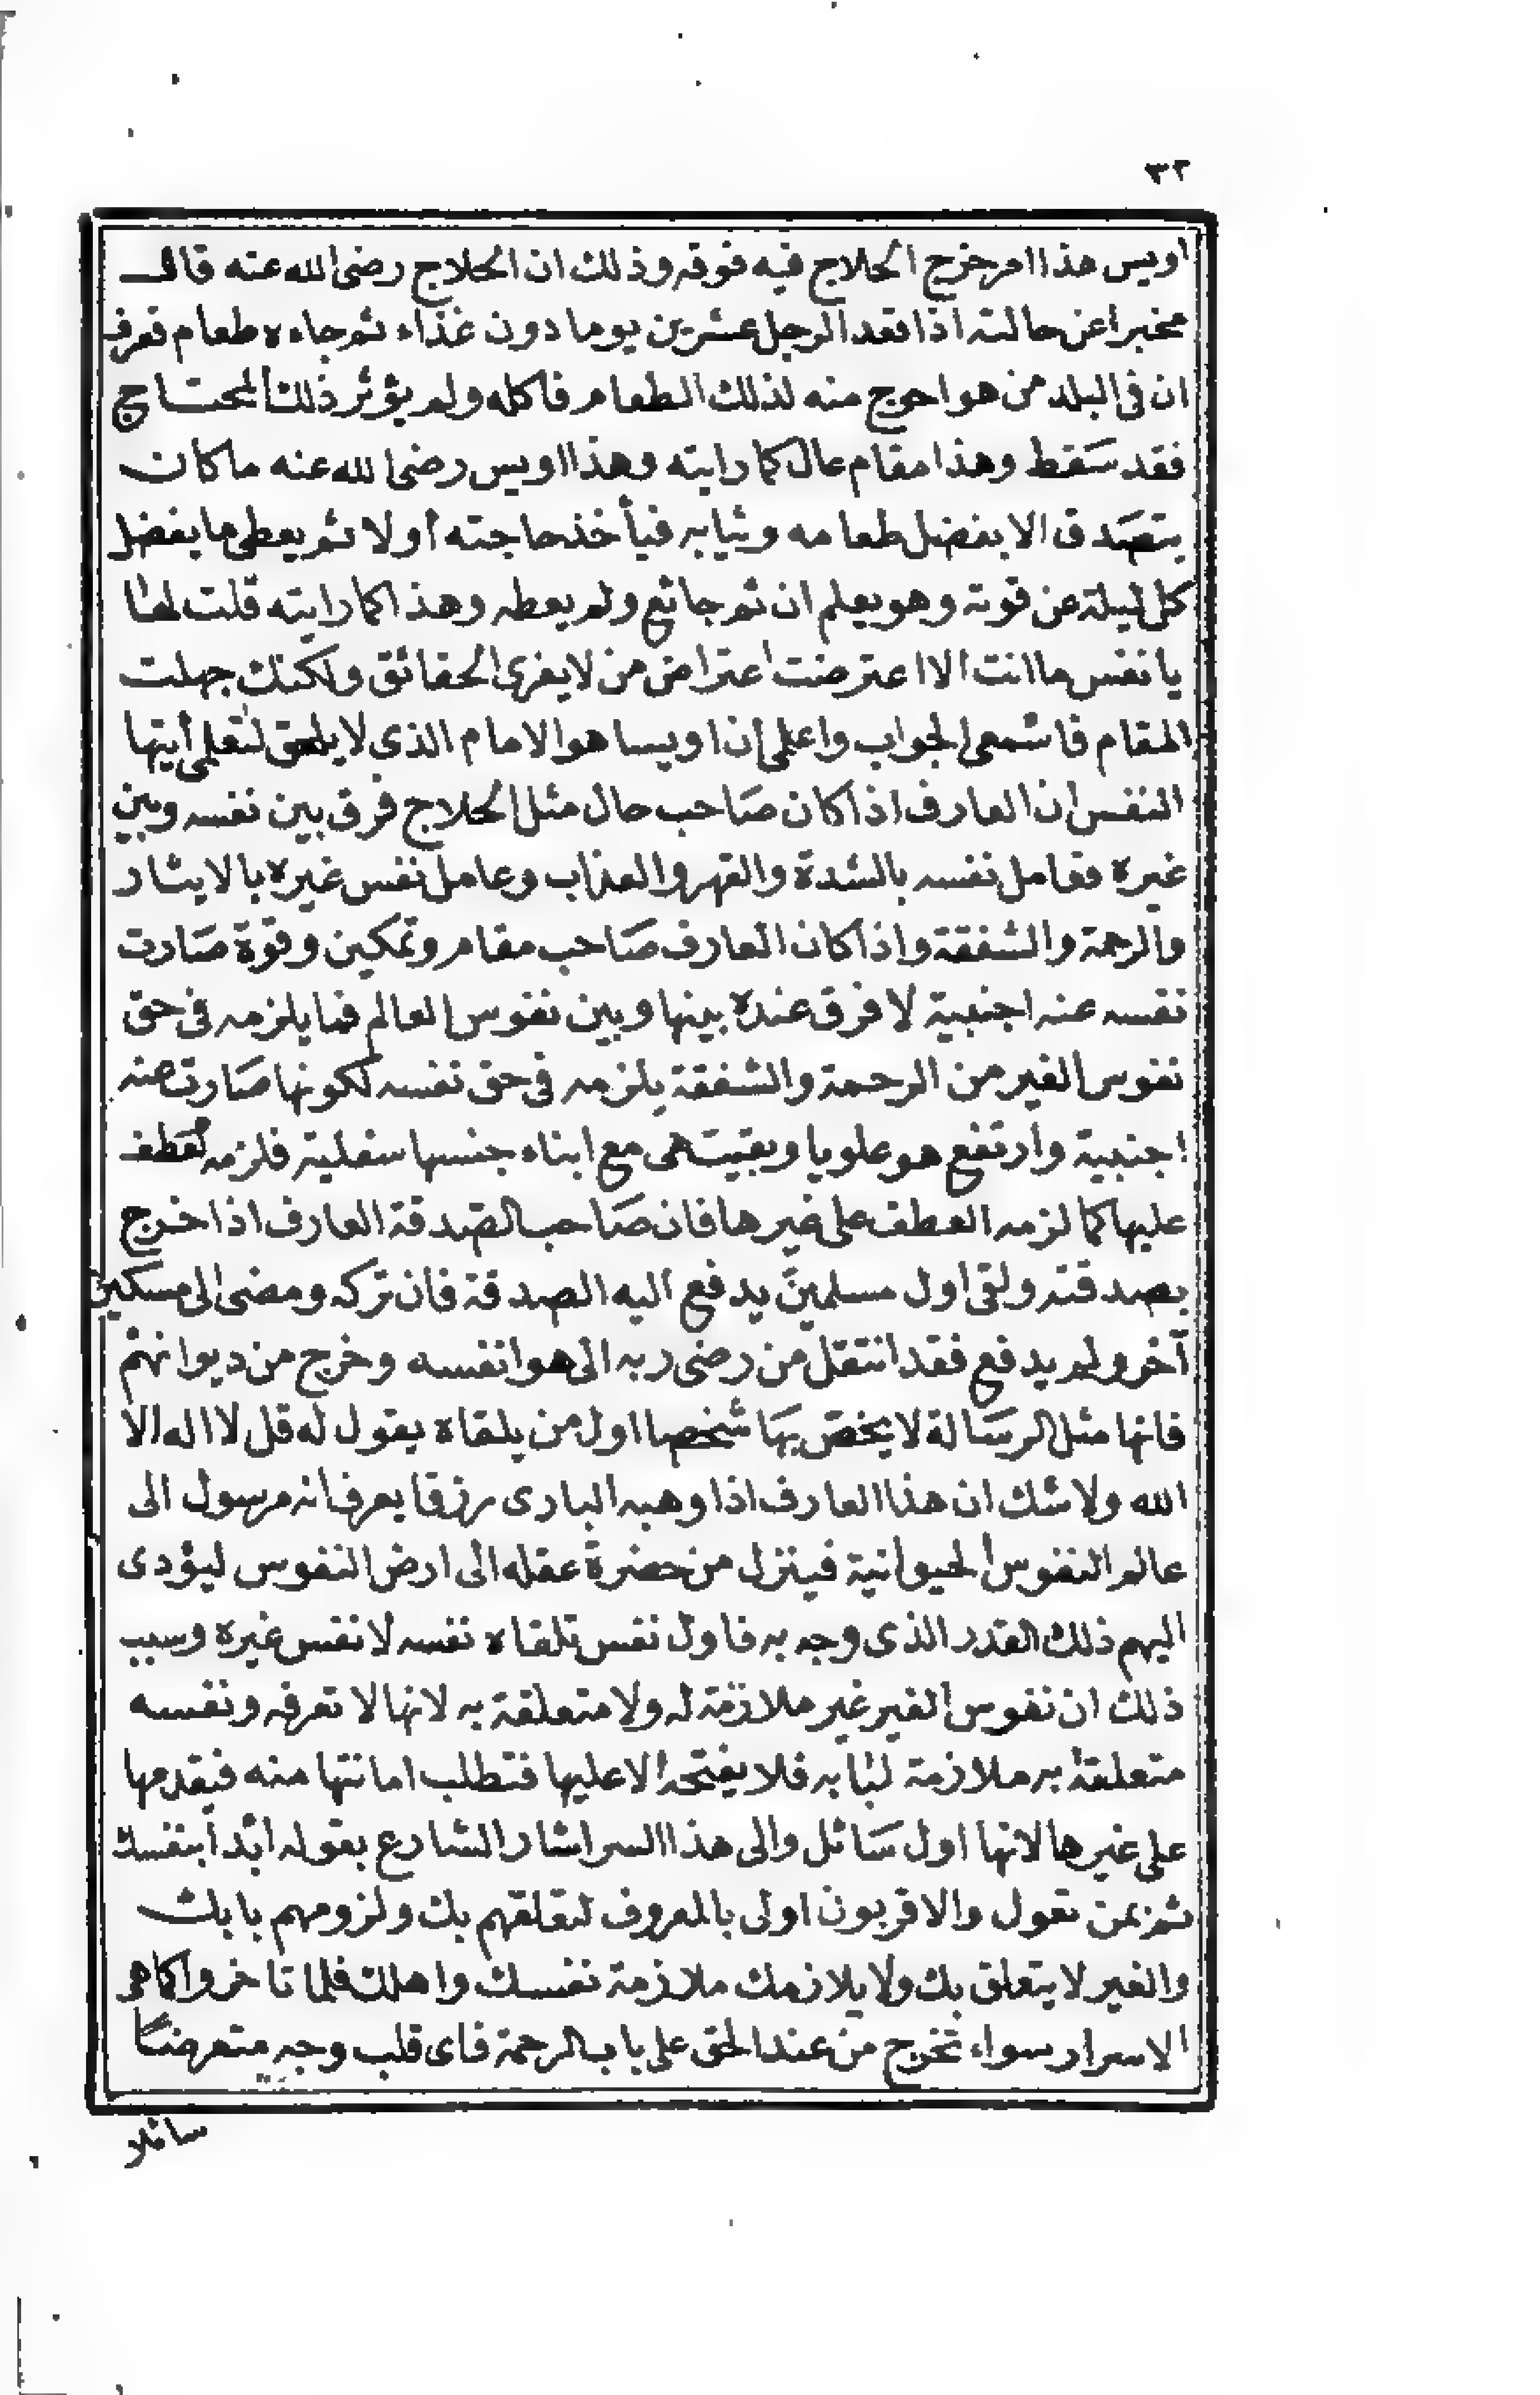 ٣٢
اويس هذا امر خرج الحلاج فيه فوقه وذلك ان الحلاج رضى الله عنه قال
مخبرا عن حالته اذا قعد الرجل عشرين يوما دون غذاء ثم جاءه طعام فعرف
ان فى البلد من هو احوج منه لذلك الطعام فاكله ولم يؤثر ذلك المحتاج
فقد سقط وهذا مقام عال كما رايته وهذا اويس رضى الله عنه ما كان
يتصدق الا بفضل طعامه وثيابه فيأخذ حاجته أولا ثم يعطى ما يفضل
كل ليلة عن قوته وهو يعلم ان ثم جائع ولم يعطه وهذا كما رايته قلت لها
يا نفس ما انت الا اعترضت اعتراض من لا يعرى الحقائق ولكنك جهلت
المقام فاسمعى الجواب واعلمى ان اويسا هو الامام الذى لا يلحق لتعلمى أيتها
النفس ان العارف اذا كان صاحب حال مثل الحلاج فرق بين نفسه وبين
غيره فعامل نفسه بالشدة والقهر والعذاب وعامل نفس غيره بالايثار
والرحمة والشفقة واذا كان العارف صاحب مقام وتمكين وقوة صارت
نفسه عنه اجنبية لا فرق عنده بينها وبين نفوس العالم فما يلزمه فى حق
نفوس الغير من الرحمة والشفقة يلزمه فى حق نفسه لكونها صارت عنه
اجنبية وارتفع هو علويا وبقيت هى مع ابناء جنسها سفلية فلزمه لعطف
عليها كما لزمه العطف على غيرها فان صاحب الصدقة العارف اذا خرج
بصدقته ولقى اول مسلمين يدفع اليه الصدقة فان تركه ومضى الى مسكين
آخر ولم يدفع فقد انتقل من رضى ربه الى هوا نفسه وخرج من ديوانهم
فانها مثل الرسالة لا يخص بها شخصا اول من يلقاه يقول له قل لا اله الا
الله ولا شك ان هذا العارف اذا وهبه البارى رزقا يعرف انه مرسول الى
عالم النفوس الحيوانية فينزل من حضرة عقله الى ارض النفوس ليؤدى
اليهم ذلك القدر الذى وجه به فاول نفس تلقاه نفسه لا نفس غيره وسبب
ذلك ان نفوس الغير غير ملازمة له ولا متعلقة به لانها لا تعرفه ونفسه
متعلقة به ملازمة لبابه فلا يفتحه الا عليها فتطلب امانتها منه فيقدمها
على غيرها لانها اول سائل والى هذا السر اشار الشارع بقوله ابدا بنفسك
ثم بمن تعول والاقربون اولى بالمعروف لتعلقهم بك ولزومهم بابك
والغير لا يتعلق بك ولا يلازمك ملازمة نفسك واهلك فلما تاخروا كما هو
الاسرار سواء تخرج من عند الحق على باب الرحمة فاى قلب وجه متعرضا
سائلا